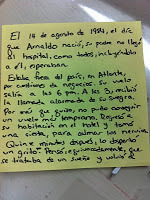 El 14 de agosto de 1984, el día
que Arnaldo nació, su padre no llegó
al hospital, como todos, incluyéndolo
a él, esperaban.
Estaba fuera del país, en Atlanta,
por cuestiones de negocios. Su vuelo
salía a las 6 pm, y a las 3, recibió
la llamada alarmada de su suegra.
Por más que quiso, no pudo conseguir
un vuelo más temprano. Regresó a
su habitación en el hotel y tomó
una siesta, para calmar los nervios.
Quince minutos después, lo despertó
un grito. Pensó, equivocadamente, que
se trataba de un sueño y volvió a